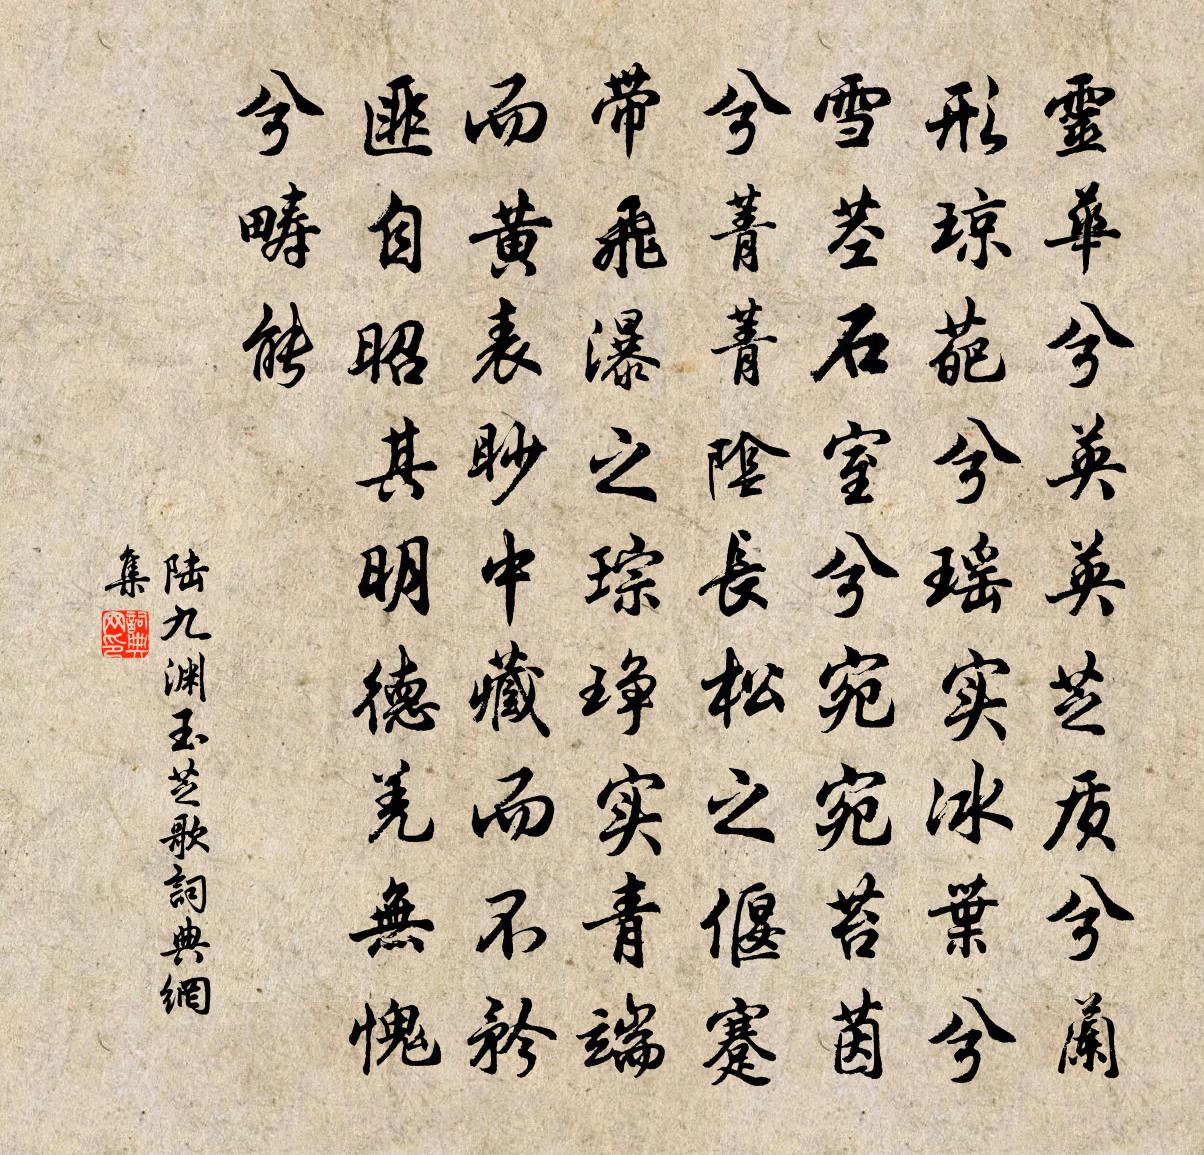 靈華兮英英芝质兮蘭
形琼葩兮瑶实冰葉兮
雪茎石室兮宛宛苔茵
兮菁菁陰長松之偃蹇
带飛瀑之琮琤实青端
而黄表眇中藏而不矜
匪自昭其明德羌無愧
兮疇能
陆九渊玉芝歌詞典網
集
詞典
网印